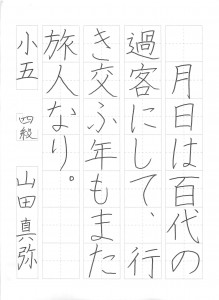 月日は百代の
過客にして、行
き交ふ年もまた
旅人なり。
小五 四級 山田真弥